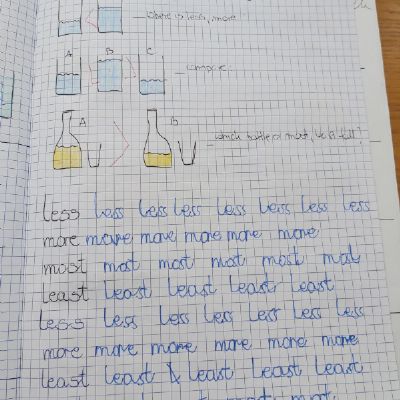 where is less, more?
A B C
compare
A B
which bottle is most, is full?
less less less less less less less less
more more more more more more
most most most most most most
least least least least least
less less less less less less less
more more more more more more
least least & least least least
most most